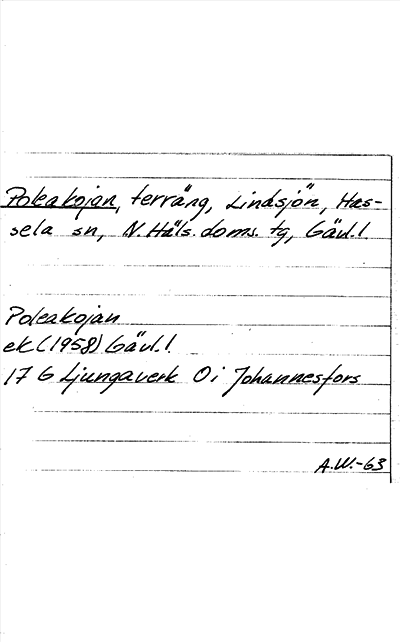 Poleakojan, terräng, Lindsjön, Has-
sela sn, N. Häls. doms. tg, Gävl. l.
Poleakojan
ek (1958) Gävl. l.
17 G Ljungaverk Ö i Johannesfors
A.W.-63